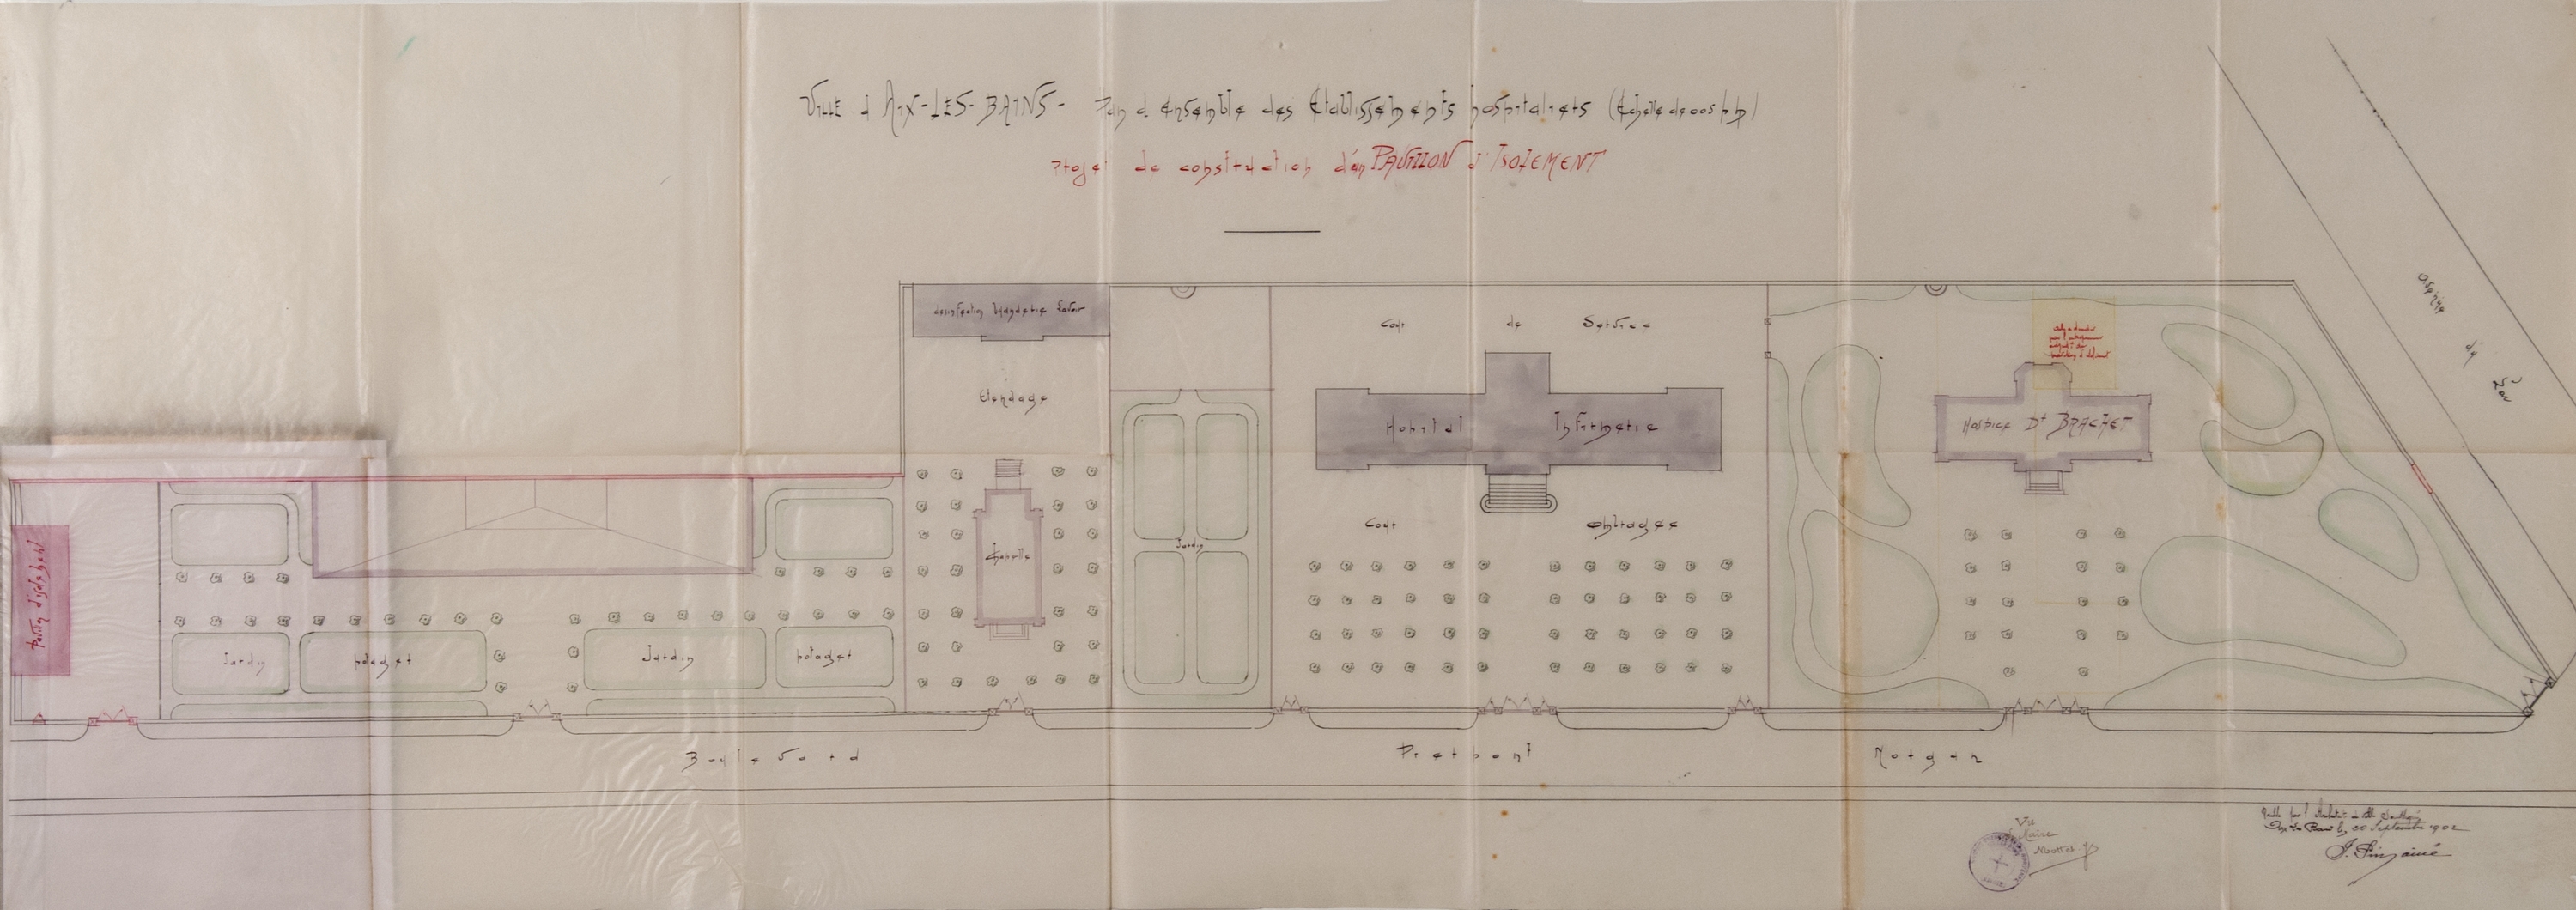 VILLE d'AIX-LES-BAINS - Plan d'Ensemble des Etablissements hospitaliers (Echelle de 0,005 p.m)
Projet de construction d'un PAVILLON d'ISOLEMENT
desinfection buanderie lavoir
Etendage
Cour de Service
Hopital Infirmerie
Cour ombragée
Hospice Dr BRACHET
Avenue du Lac
Chapelle
Jardin
Pavillon d'isolement
Jardin potager
Jardin potager
Boulevard Pierpont Morgan
Vu
Le Maire
Dressé par l'Architecte de la Ville soussigné
Aix-les-Bains le, 20 Septembre 1902
J. Pin, ainé